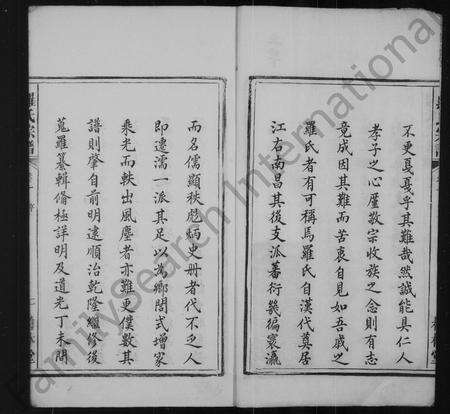 不更戛戛乎其難哉然誠能具仁人
孝子之心屋敦宗收族之念則有志
竟成因其難而苦衷自見如吾戚之
羅氏者有可稱焉羅氏自漢代奠居
江右南昌其後支派蕃衍幾徧寰瀛
而名儒顯秩彪炳史冊者代不乏人
即遷濡一派其足以為鄉閭式增家
乘光而軼出風塵者亦難更僕數其
譜則肇自前明逮順治乾隆繼修後
蒐羅纂輯備極詳明及道光丁未間
羅氏宗譜
FamilySearch International